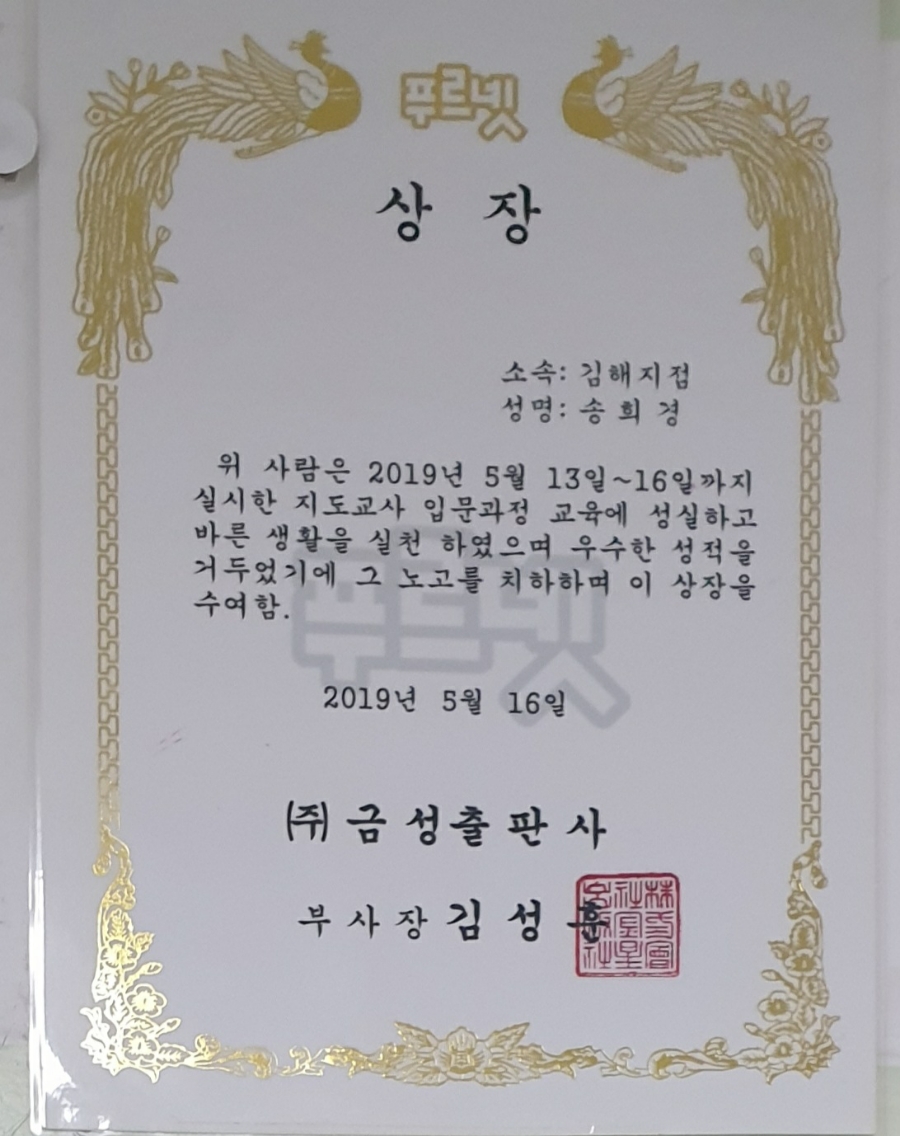 푸르넷
상 장
소속: 김해지점
성명: 송 희 경
위 사람은 2019년 5월 13일~16일까지
실시한 지도교사 입문과정 교육에 성실하고
바른 생활을 실천 하였으며 우수한 성적을
거두었기에 그 노고를 치하하며 이 상장을
수여함.
푸르넷
2019년 5월 16일
㈜ 금 성 출 판 사
부 사 장 김 성 훈